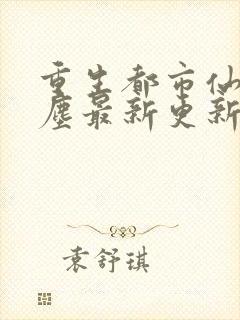 重生都市仙
尘最新更新
袁舒琪